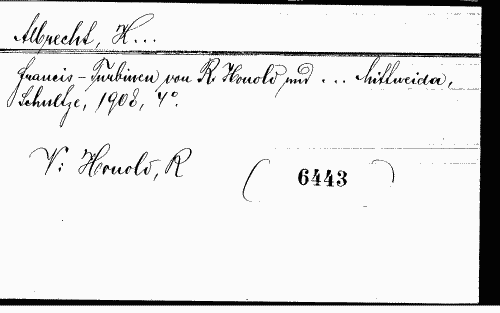 Albrecht, H...
Francis-Turbinen von R. Honold und ... Mittweida,
Schultze, 1908, 4°.
V: Honold, R
6443